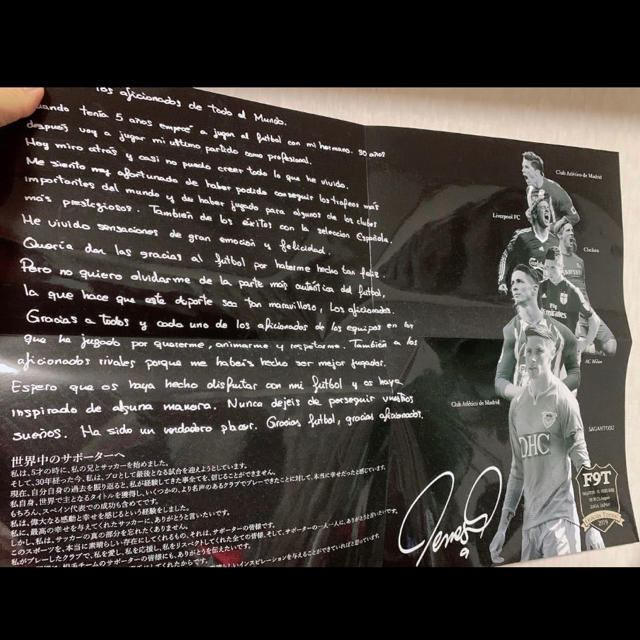 los aficionados de todo el Mundo.
Cuando tenía 5 años empecé a jugar al fútbol con mi hermano. 30 años
después voy a jugar mi último partido como profesional.
Hoy miro atrás y casi no puedo creer todo lo que he vivido.
Me siento muy afortunado de haber podido conseguir los trofeos más
importantes del mundo y de haber jugado para algunos de los clubes
más prestigiosos. También de los éxitos con la selección Española.
He vivido sensaciones de gran emoción y felicidad.
Quería dar las gracias al fútbol por haberme hecho tan feliz.
Pero no quiero olvidarme de la parte más auténtica del fútbol,
la que hace que este deporte sea tan maravilloso, los aficionados.
Gracias a todos y cada uno de los aficionados de los equipos en los
que he jugado por quererme, animarme y respetarme. También a los
aficionados rivales porque me habéis hecho ser mejor jugador.
Espero que os haya hecho disfrutar con mi fútbol y os haya
inspirado de alguna manera. Nunca dejeis de perseguir vuestros
sueños. Ha sido un verdadero placer. Gracias fútbol, gracias aficionados.
世界中のサポーターへ
私は、5才の時に、私の兄とサッカーを始めました。
そして、30年経った今、私は、プロとして最後となる試合を迎えようとしています。
現在、自分自身の過去を振り返ると、私が経験してきた事全てを、信じることができません。
私自身、世界で主となるタイトルを獲得し、いくつかの、より名声のあるクラブでプレーできたことに対して、本当に幸せだったと感じています。
もちろん、スペイン代表での成功も含めてです。
私は、偉大なる感動と幸せを感じるという経験をしました。
私に、最高の幸せを与えてくれたサッカーに、ありがとうと言いたいです。
しかし、私は、サッカーの真の部分を忘れたくありません。それは、サポーターの皆様です。
このスポーツを、本当に素晴らしい存在にしてくれるもの、
私がプレーしたクラブで、私を愛し、私を応援し、私をリスペクトしてくれた全ての皆様、そして、サポーターの一人一人に、ありがとうと言いたいです。
Club Atlético de Madrid
Liverpool FC
Chelsea
AC Milan
Club Atlético de Madrid
SAGANTOSU
DHC
F9T
9